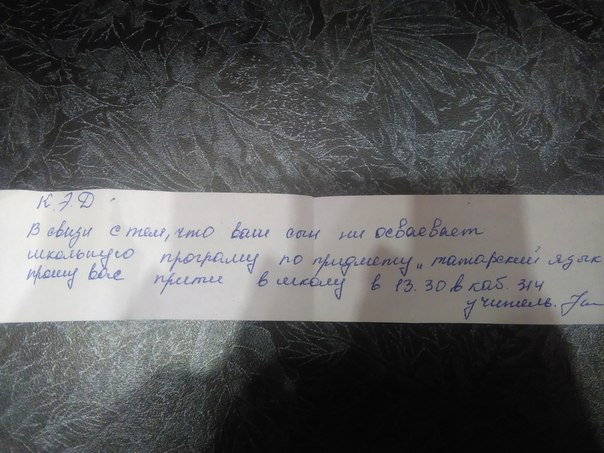 К.Э.Д.
В связи с тем, что ваш сын ни осваевает
школьную програму по придмету „татарский язык
прошу вас прити в школу в 13.30 в каб. 314
учитель.